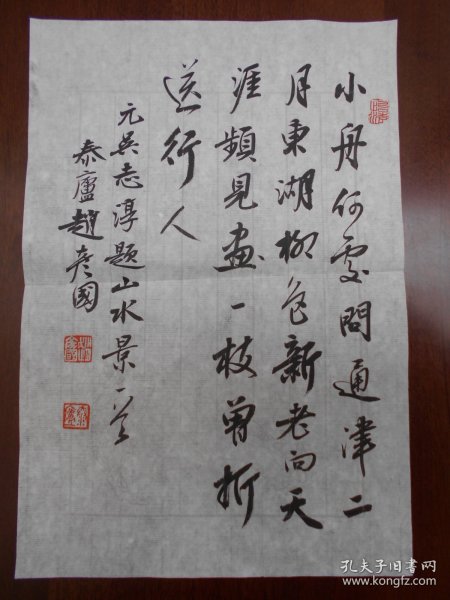 小舟何處問通津二
月東湖柳色新老向天
涯頻見畫一枝曾折
送行人
元吳志淳題山水景一首
泰廬趙彥國
孔夫子旧书网
www.kongfz.com